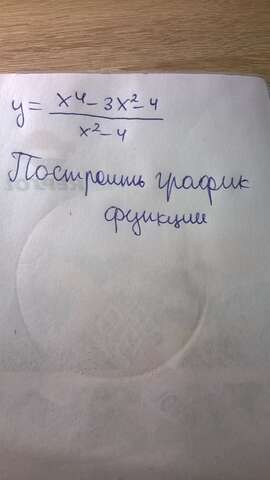 y = (x⁴ - 3x² - 4) / (x² - 4)
Построить график
функции